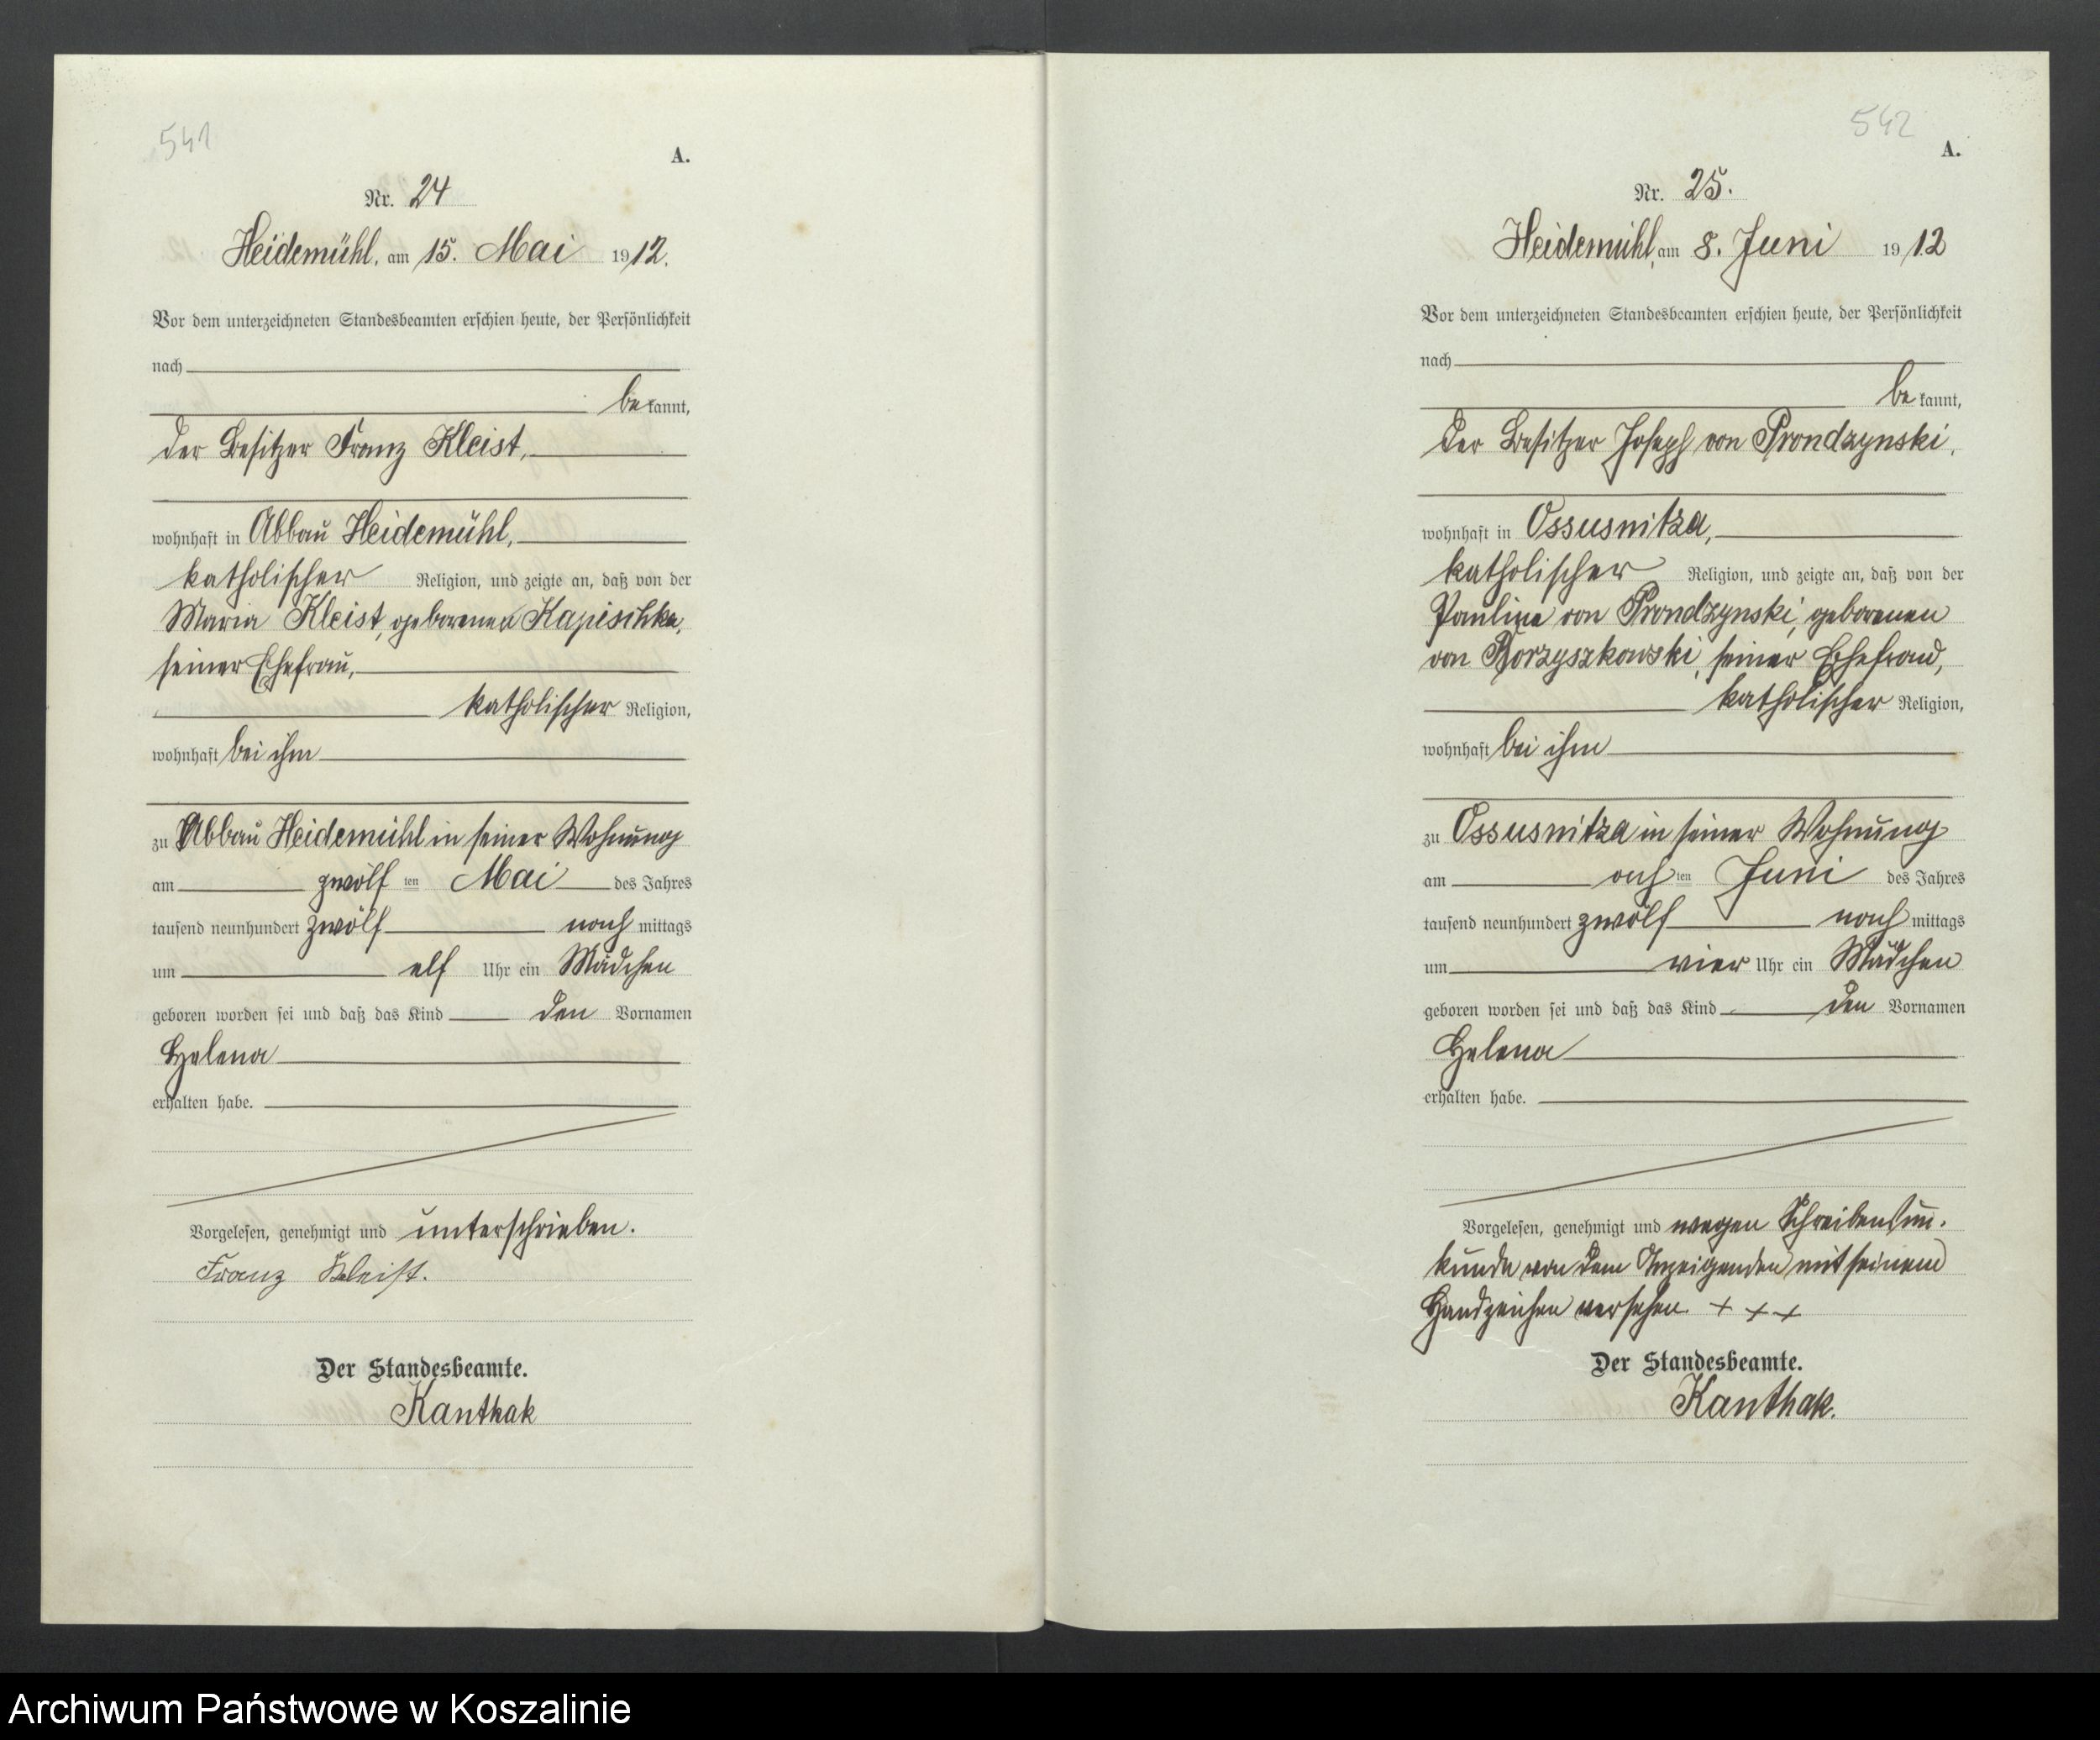 541
A.
Nr. 24
Heidemühl, am 15. Mai 1912.
Vor dem unterzeichneten Standesbeamten erschien heute, der Persönlichkeit
nach
bekannt,
der Besitzer Franz Kleist,
wohnhaft in Abbau Heidemühl,
katholischer Religion, und zeigte an, daß von der
Maria Kleist, geborenen Kapischke,
seiner Ehefrau,
katholischer Religion,
wohnhaft bei ihm
zu Abbau Heidemühl in seiner Wohnung
am zwölf ten Mai des Jahres
tausend neunhundert zwölf nach mittags
um elf Uhr ein Mädchen
geboren worden sei und daß das Kind den Vornamen
Helena
erhalten habe.
Vorgelesen, genehmigt und unterschrieben.
Franz Kleist.
Der Standesbeamte.
Kanthak
542
A.
Nr. 25.
Heidemühl, am 8. Juni 1912
Vor dem unterzeichneten Standesbeamten erschien heute, der Persönlichkeit
nach
bekannt,
der Besitzer Joseph von Prondzynski,
wohnhaft in Ossusnitza,
katholischer Religion, und zeigte an, daß von der
Pauline von Prondzynski, geborenen
von Borzyszkowski, seiner Ehefrau,
katholischer Religion,
wohnhaft bei ihm
zu Ossusnitza in seiner Wohnung
am ach ten Juni des Jahres
tausend neunhundert zwölf nach mittags
um vier Uhr ein Mädchen
geboren worden sei und daß das Kind den Vornamen
Helena
erhalten habe.
Vorgelesen, genehmigt und wegen Schreibensun-
kunde von dem Anzeigenden mit seinem
Handzeichen versehen. + + +
Der Standesbeamte.
Kanthak.
Archiwum Państwowe w Koszalinie